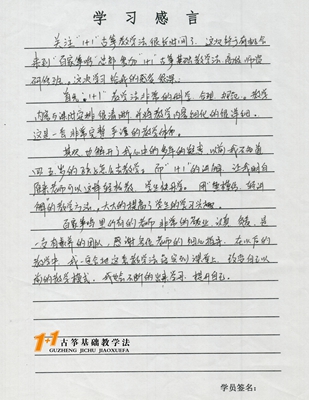 学习感言
关注"1+1"古筝教学法很长时间了,这次终于有机会
来到"百家筝鸣"总部参加"1+1"古筝基础教学法
研修班。这次学习给我的感受很深。
首先,1+1教学法非常的科学、合理、规范。教学
内容与课时安排很清晰,并将教学内容细化的很详细。
这是一套非常完整、严谨的教学体系。
其次,也解开了我心中的多年的疑惑,以前我不知道
四五岁的孩子怎么去教学。而"1+1"的讲解,让我明白
原来老师可以这样轻松教,学生快乐学。用
解"的教学方法,大大的提高了学生的学习兴趣。
百家筝鸣里所有的老师非常的敬业、认真、负责,是
一支有素养的团队,感谢各位老师的细心指导。在以后的
教学中,我一定会把这套教学法落实到课堂上,改变自己以
前的教学模式。我会不断的出来学习,提升自己。
1+1古筝基础教学法
GUZHENG JICHU JIAOXUEFA
学员签名: